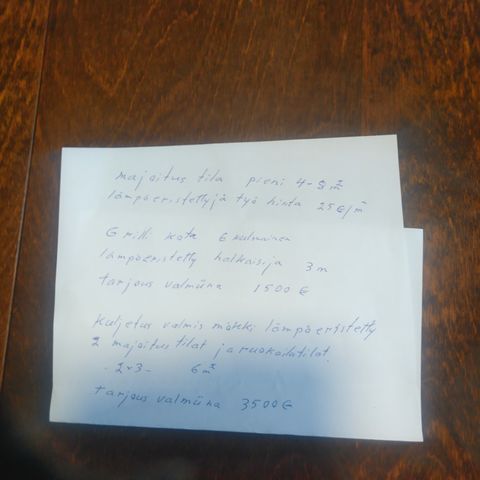 majoitus tila pieni 4-8 m²
lämpöeristettyjä työ hinta 25€/m²
Grilli kota 6 kulmainen
lämpöeristetty halkaisija 3 m
tarjous valmiina 1500 €
Kuljetus valmis mökki lämpöeristetty
2 majoitustilat ja ruokailutilat
- 2×3 - 6 m²
tarjous valmiina 3500 €